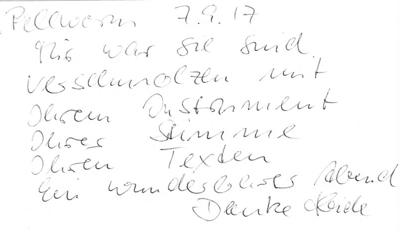 Pellworm 7.9.17
Mir war Sie sind
verschmolzen mit
Ihrem Instrument
Ihrer Stimme
Ihren Texten
Ein wunderbarer Abend
Danke